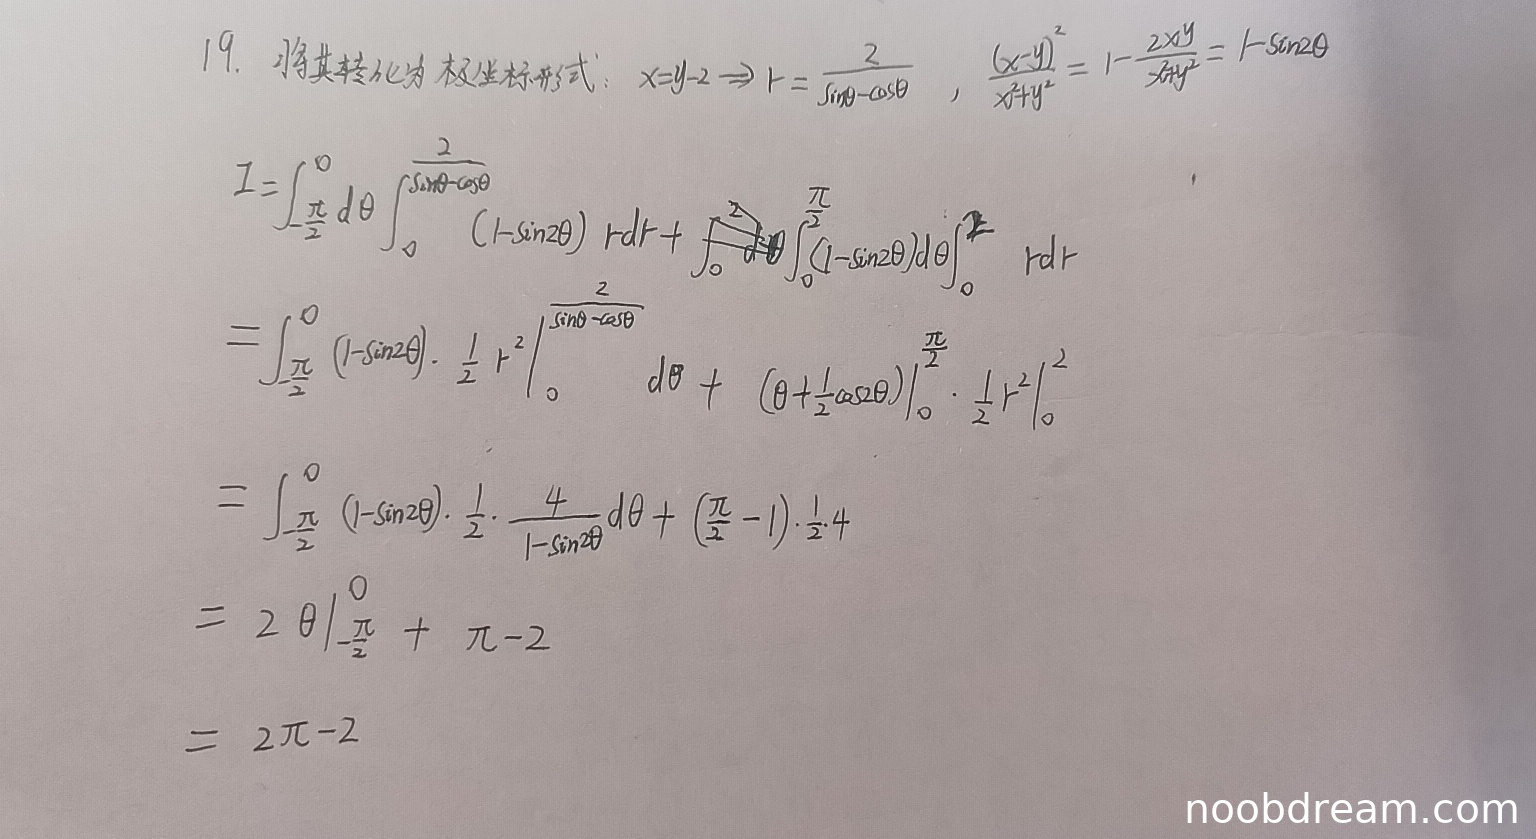 19. 将其转化为极坐标形式: x=y-2 ⇒ r = 2/(sinθ-cosθ) , (x-y)²/(x²+y²) = 1 - 2xy/(x²+y²) = 1-sin2θ
I = ∫_{-π/2}^{0} dθ ∫_{0}^{2/(sinθ-cosθ)} (1-sin2θ) rdr + ∫_{0}^{π/2} (1-sin2θ)dθ ∫_{0}^{2} rdr
= ∫_{-π/2}^{0} (1-sin2θ)· 1/2 r² |_{0}^{2/(sinθ-cosθ)} dθ + (θ+1/2 cos2θ)|_{0}^{π/2} · 1/2 r² |_{0}^{2}
= ∫_{-π/2}^{0} (1-sin2θ)· 1/2 · 4/(1-sin2θ) dθ + (π/2 - 1)· 1/2 ·4
= 2 θ|_{-π/2}^{0} + π-2
= 2π-2
noobdream.com